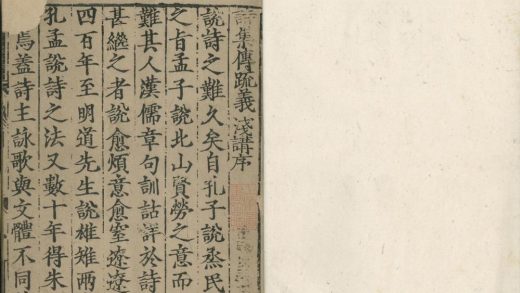 詩集傳疏義淺講序
說詩之難久矣自孔子說烝民
之旨孟子說北山賢勞之意而
難其人漢儒章句訓詁詳於詩
甚繼之者說愈煩意愈窒遼遼
四百年至明道先生說雄雉兩
孔孟說詩之法又數十年得朱
焉蓋詩主詠歌與文體不同